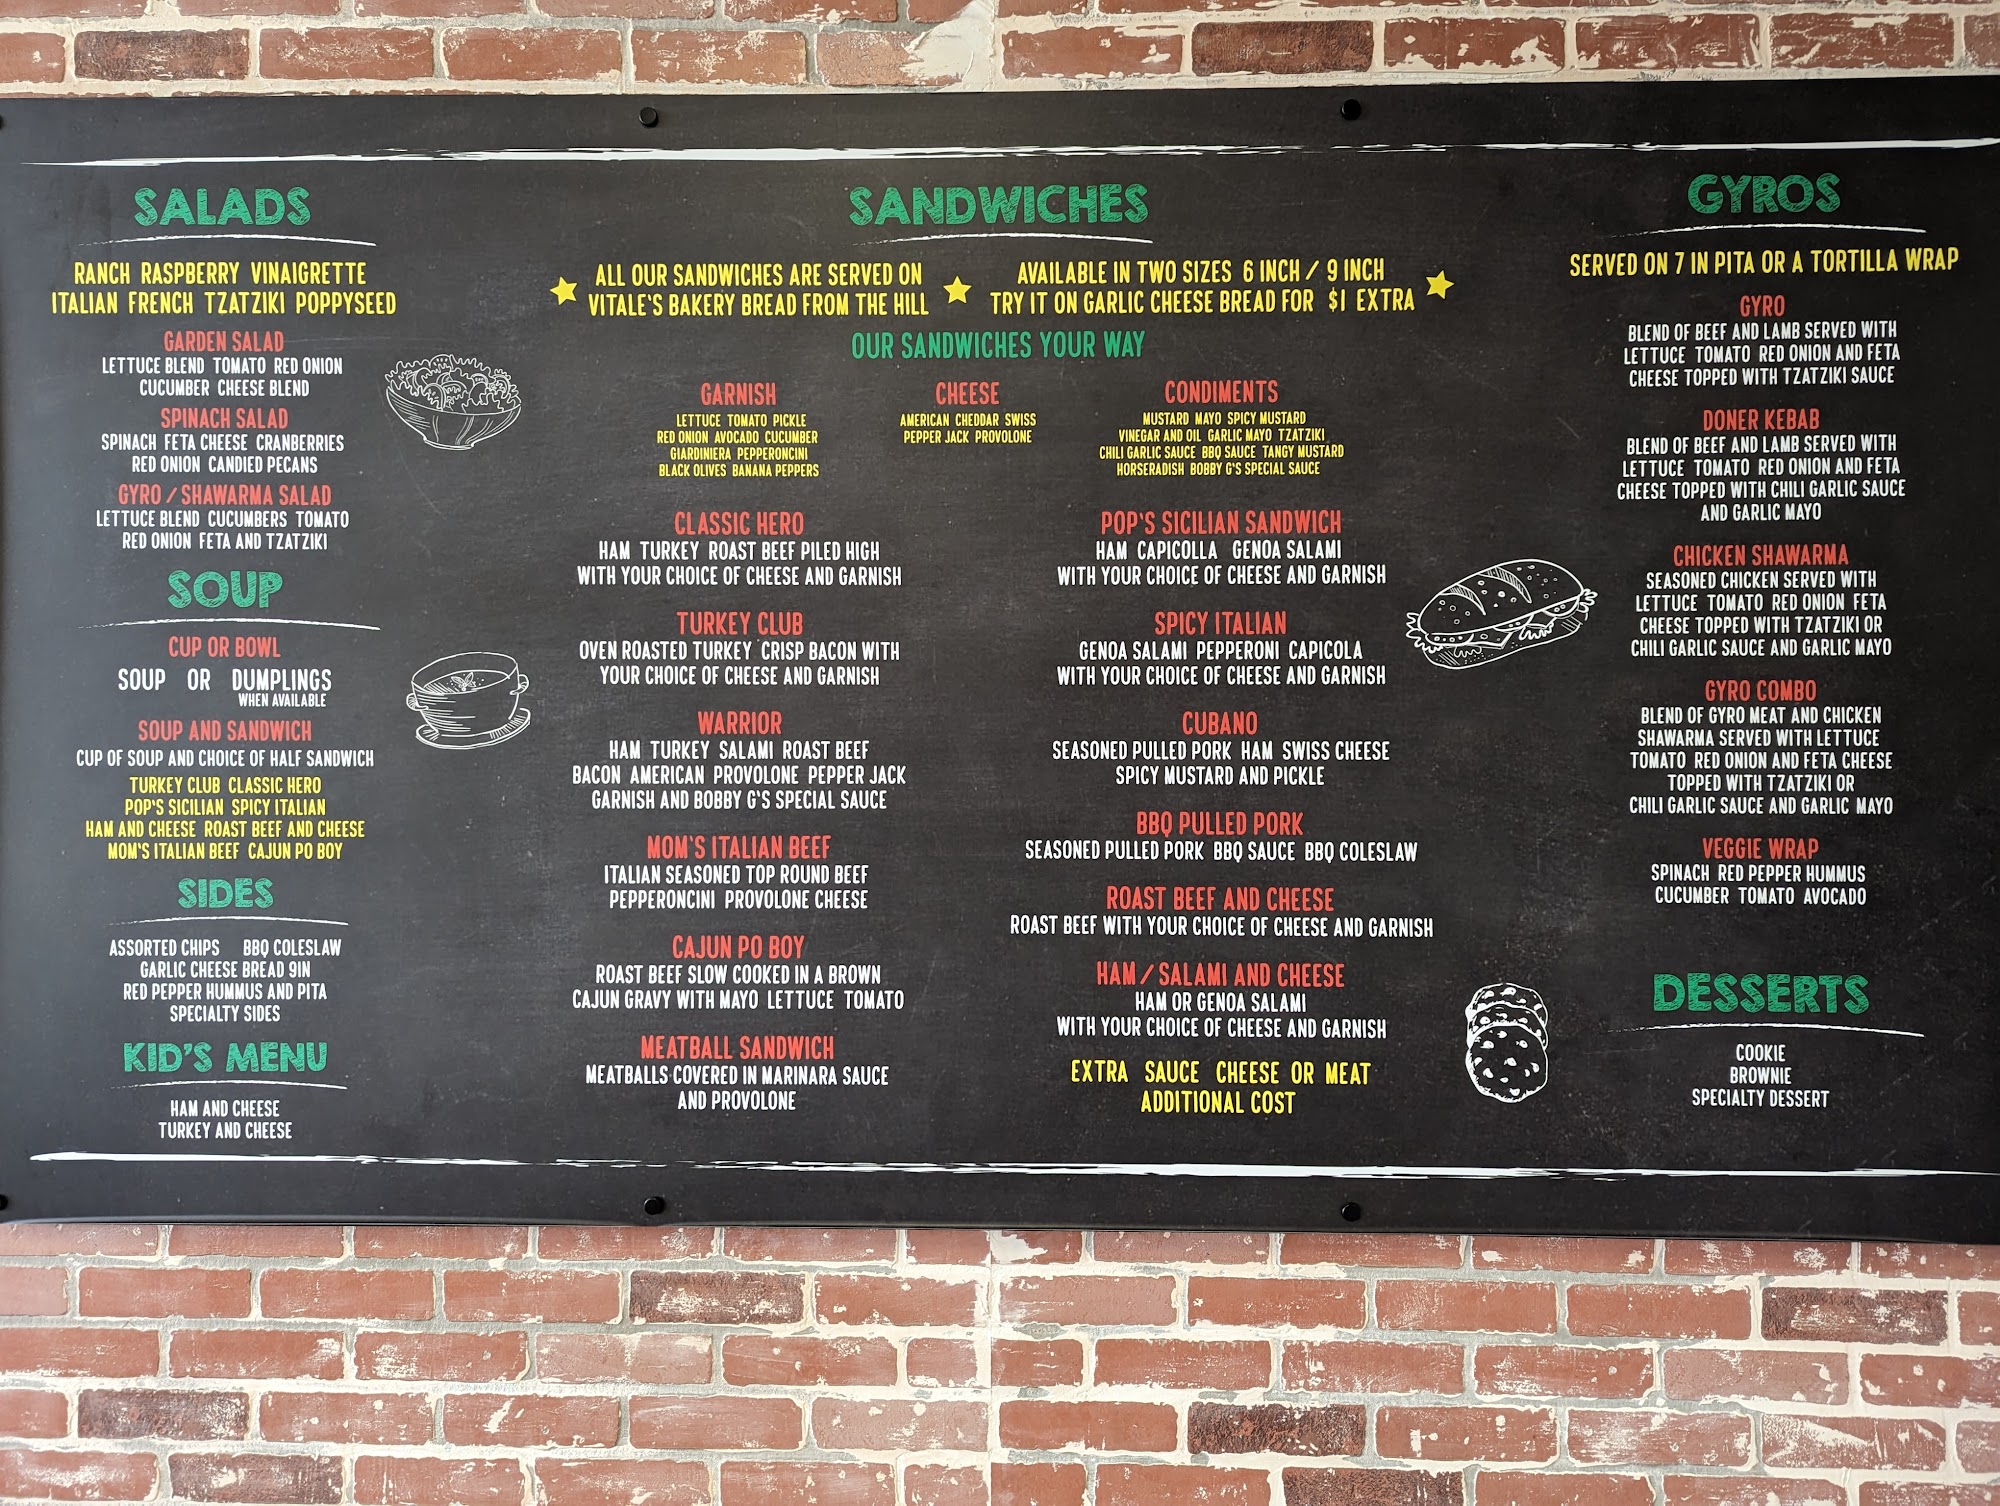 SALADS
RANCH RASPBERRY VINAIGRETTE
ITALIAN FRENCH TZATZIKI POPPYSEED
GARDEN SALAD
LETTUCE BLEND TOMATO RED ONION
CUCUMBER CHEESE BLEND
SPINACH SALAD
SPINACH FETA CHEESE CRANBERRIES
RED ONION CANDIED PECANS
GYRO / SHAWARMA SALAD
LETTUCE BLEND CUCUMBERS TOMATO
RED ONION FETA AND TZATZIKI
SOUP
CUP OR BOWL
SOUP OR DUMPLINGS
WHEN AVAILABLE
SOUP AND SANDWICH
CUP OF SOUP AND CHOICE OF HALF SANDWICH
TURKEY CLUB CLASSIC HERO
POP'S SICILIAN SPICY ITALIAN
HAM AND CHEESE ROAST BEEF AND CHEESE
MOM'S ITALIAN BEEF CAJUN PO BOY
SIDES
ASSORTED CHIPS BBQ COLESLAW
GARLIC CHEESE BREAD 9IN
RED PEPPER HUMMUS AND PITA
SPECIALTY SIDES
KID'S MENU
HAM AND CHEESE
TURKEY AND CHEESE
SANDWICHES
ALL OUR SANDWICHES ARE SERVED ON
VITALE'S BAKERY BREAD FROM THE HILL
AVAILABLE IN TWO SIZES 6 INCH / 9 INCH
TRY IT ON GARLIC CHEESE BREAD FOR $1 EXTRA
OUR SANDWICHES YOUR WAY
GARNISH
LETTUCE TOMATO PICKLE
RED ONION AVOCADO CUCUMBER
GIARDINIERA PEPPERONCINI
BLACK OLIVES BANANA PEPPERS
CHEESE
AMERICAN CHEDDAR SWISS
PEPPER JACK PROVOLONE
CONDIMENTS
MUSTARD MAYO SPICY MUSTARD
VINEGAR AND OIL GARLIC MAYO TZATZIKI
CHILI GARLIC SAUCE BBQ SAUCE TANGY MUSTARD
HORSERADISH BOBBY G'S SPECIAL SAUCE
CLASSIC HERO
HAM TURKEY ROAST BEEF PILED HIGH
WITH YOUR CHOICE OF CHEESE AND GARNISH
TURKEY CLUB
OVEN ROASTED TURKEY CRISP BACON WITH
YOUR CHOICE OF CHEESE AND GARNISH
WARRIOR
HAM TURKEY SALAMI ROAST BEEF
BACON AMERICAN PROVOLONE PEPPER JACK
GARNISH AND BOBBY G'S SPECIAL SAUCE
MOM'S ITALIAN BEEF
ITALIAN SEASONED TOP ROUND BEEF
PEPPERONCINI PROVOLONE CHEESE
CAJUN PO BOY
ROAST BEEF SLOW COOKED IN A BROWN
CAJUN GRAVY WITH MAYO LETTUCE TOMATO
MEATBALL SANDWICH
MEATBALLS COVERED IN MARINARA SAUCE
AND PROVOLONE
POP'S SICILIAN SANDWICH
HAM CAPICOLLA GENOA SALAMI
WITH YOUR CHOICE OF CHEESE AND GARNISH
SPICY ITALIAN
GENOA SALAMI PEPPERONI CAPICOLA
WITH YOUR CHOICE OF CHEESE AND GARNISH
CUBANO
SEASONED PULLED PORK HAM SWISS CHEESE
SPICY MUSTARD AND PICKLE
BBQ PULLED PORK
SEASONED PULLED PORK BBQ SAUCE BBQ COLESLAW
ROAST BEEF AND CHEESE
ROAST BEEF WITH YOUR CHOICE OF CHEESE AND GARNISH
HAM / SALAMI AND CHEESE
HAM OR GENOA SALAMI
WITH YOUR CHOICE OF CHEESE AND GARNISH
EXTRA SAUCE CHEESE OR MEAT
ADDITIONAL COST
GYROS
SERVED ON 7 IN PITA OR A TORTILLA WRAP
GYRO
BLEND OF BEEF AND LAMB SERVED WITH
LETTUCE TOMATO RED ONION AND FETA
CHEESE TOPPED WITH TZATZIKI SAUCE
DONER KEBAB
BLEND OF BEEF AND LAMB SERVED WITH
LETTUCE TOMATO RED ONION AND FETA
CHEESE TOPPED WITH CHILI GARLIC SAUCE
AND GARLIC MAYO
CHICKEN SHAWARMA
SEASONED CHICKEN SERVED WITH
LETTUCE TOMATO RED ONION FETA
CHEESE TOPPED WITH TZATZIKI OR
CHILI GARLIC SAUCE AND GARLIC MAYO
GYRO COMBO
BLEND OF GYRO MEAT AND CHICKEN
SHAWARMA SERVED WITH LETTUCE
TOMATO RED ONION AND FETA CHEESE
TOPPED WITH TZATZIKI OR
CHILI GARLIC SAUCE AND GARLIC MAYO
VEGGIE WRAP
SPINACH RED PEPPER HUMMUS
CUCUMBER TOMATO AVOCADO
DESSERTS
COOKIE
BROWNIE
SPECIALTY DESSERT